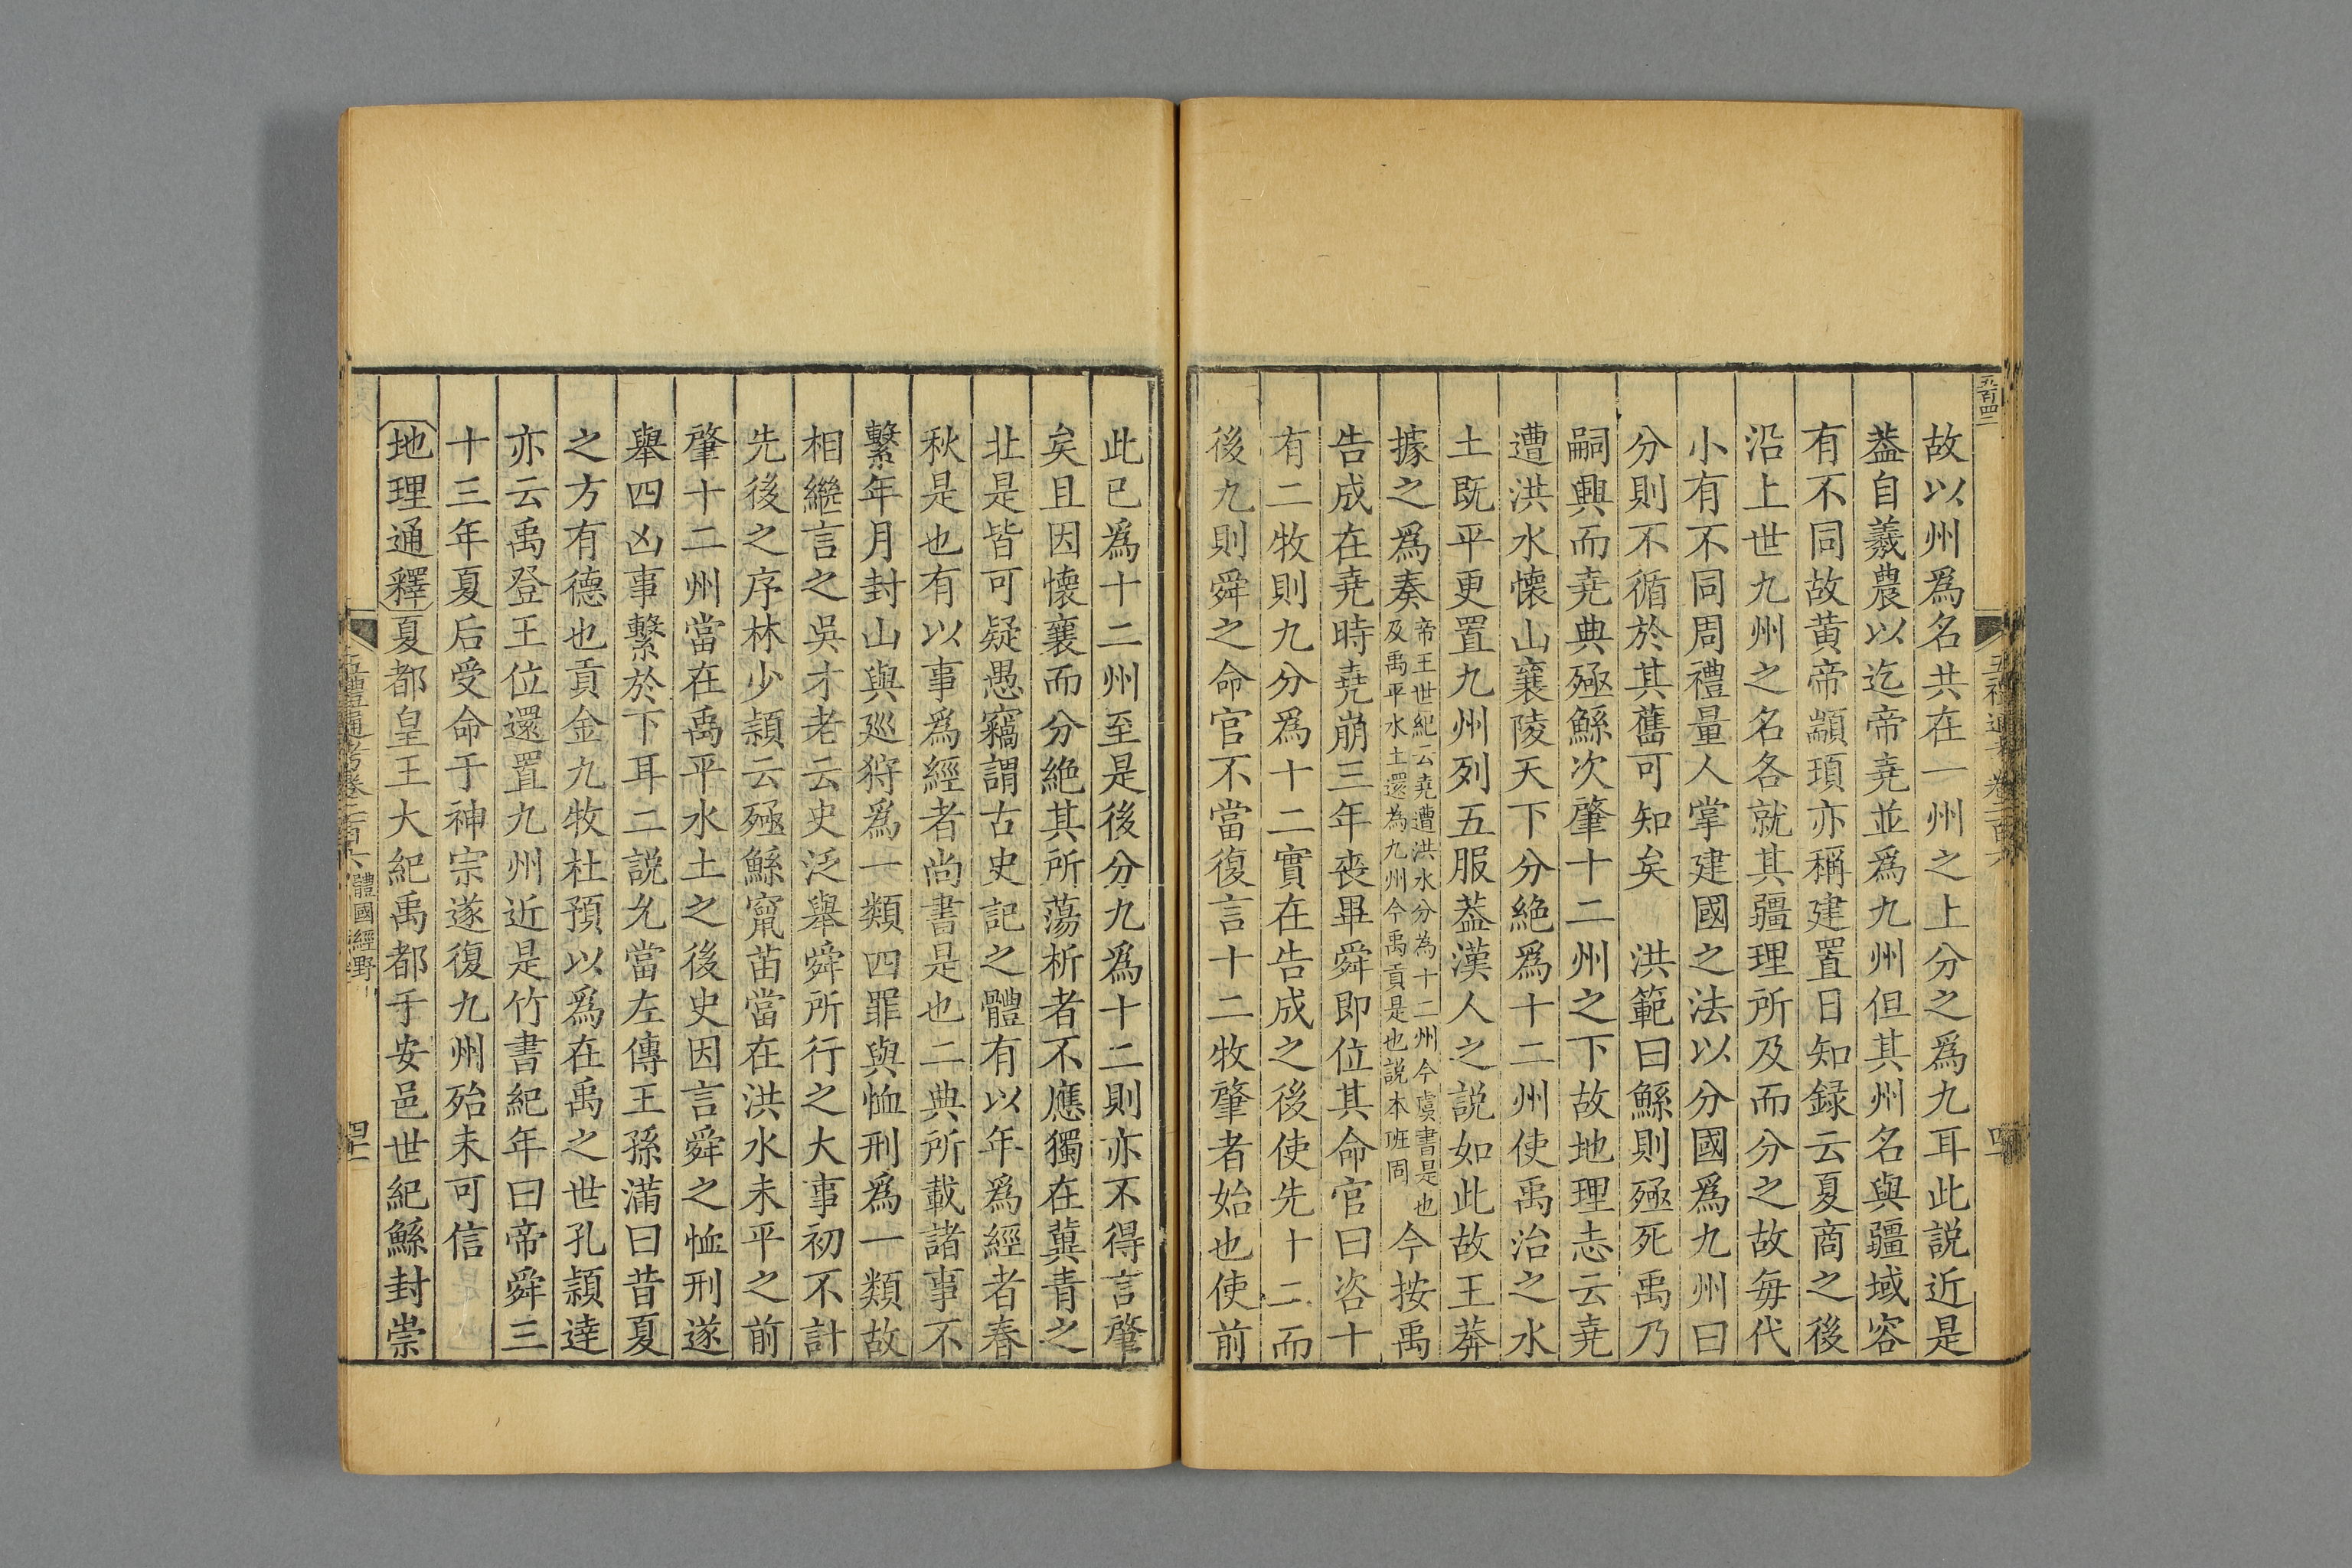 故以州爲名共在一州之上分之爲九耳此説近是
葢自羲農以迄帝堯並爲九州但其州名與疆域容
有不同故黄帝顓頊亦稱建置日知録云夏商之後
沿上世九州之名各就其疆理所及而分之故毎代
小有不同周禮量人掌建國之法以分國爲九州曰
分則不循於其舊可知矣　洪範曰鯀則殛死禹乃
嗣興而堯典殛鯀次肇十二州之下故地理志云堯
遭洪水懷山襄陵天下分絶爲十二州使禹治之水
土既平更置九州列五服葢漢人之説如此故王莽
據之爲奏帝王世紀云堯遭洪水分為十二州今虞書是也及禹平水土還為九州今禹貢是也説本班固今按禹
告成在堯時堯崩三年喪畢舜即位其命官曰咨十
有二牧則九分爲十二實在告成之後使先十二而
後九則舜之命官不當復言十二牧肇者始也使前
此已爲十二州至是後分九爲十二則亦不得言肇
矣且因懷襄而分絶其所蕩析者不應獨在冀青之
北是皆可疑愚竊謂古史記之體有以年爲經者春
秋是也有以事爲經者尚書是也二典所載諸事不
繫年月封山與巡狩爲一類四罪與恤刑爲一類故
相繼言之吳才老云史泛舉舜所行之大事初不計
先後之序林少穎云殛鯀竄苗當在洪水未平之前
肇十二州當在禹平水土之後史因言舜之恤刑遂
舉四凶事繫於下耳二説允當左傳王孫滿曰昔夏
之方有德也貢金九牧杜預以爲在禹之世孔穎逹
亦云禹登王位還置九州近是竹書紀年曰帝舜三
十三年夏后受命于神宗遂復九州殆未可信
地理通釋夏都皇王大紀禹都于安邑世紀鯀封崇
五禮通考卷二百六　體國經野